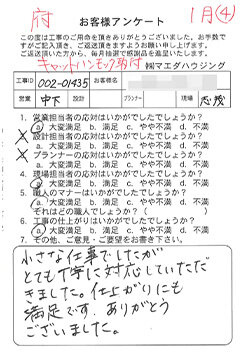 府 1月(4)
お客様アンケート
この度は工事のご用命を頂きありがとうございます。お手数ですがご記入頂き、ご返送頂きますようお願い申し上げます。
ご返送頂いた方から、毎月抽選で感謝品を進呈いたします。
キャットハンモック取付 ㈱マエダハウジング
工事ID 002-01435 お客様名
営業 中下 設計 プランナー 現場
1. 営業担当者の応対はいかがでしたでしょうか?
a 大変満足 b 満足 c やや不満 d 不満
設計担当者の応対はいかがでしたでしょうか?
a 大変満足 b 満足 c やや不満 d 不満
プランナーの応対はいかがでしたでしょうか?
a 大変満足 b 満足 c やや不満 d 不満
4. 現場担当者の応対はいかがでしたでしょうか?
a 大変満足 b 満足 c やや不満 d 不満
5. 職人のマナーはいかがでしたでしょうか?
a 大変満足 b 満足 c やや不満 d 不満
それはどの職人でしょうか?( )
6. 工事の仕上がりはいかがでしたでしょうか?
a 大変満足 b 満足 c やや不満 d 不満
7. その他、ご意見・ご要望をお書き下さい。
小さな仕事でしたが
とても丁寧に対応していただ
きました。仕上がりにも
満足です。ありがとう
ございました。